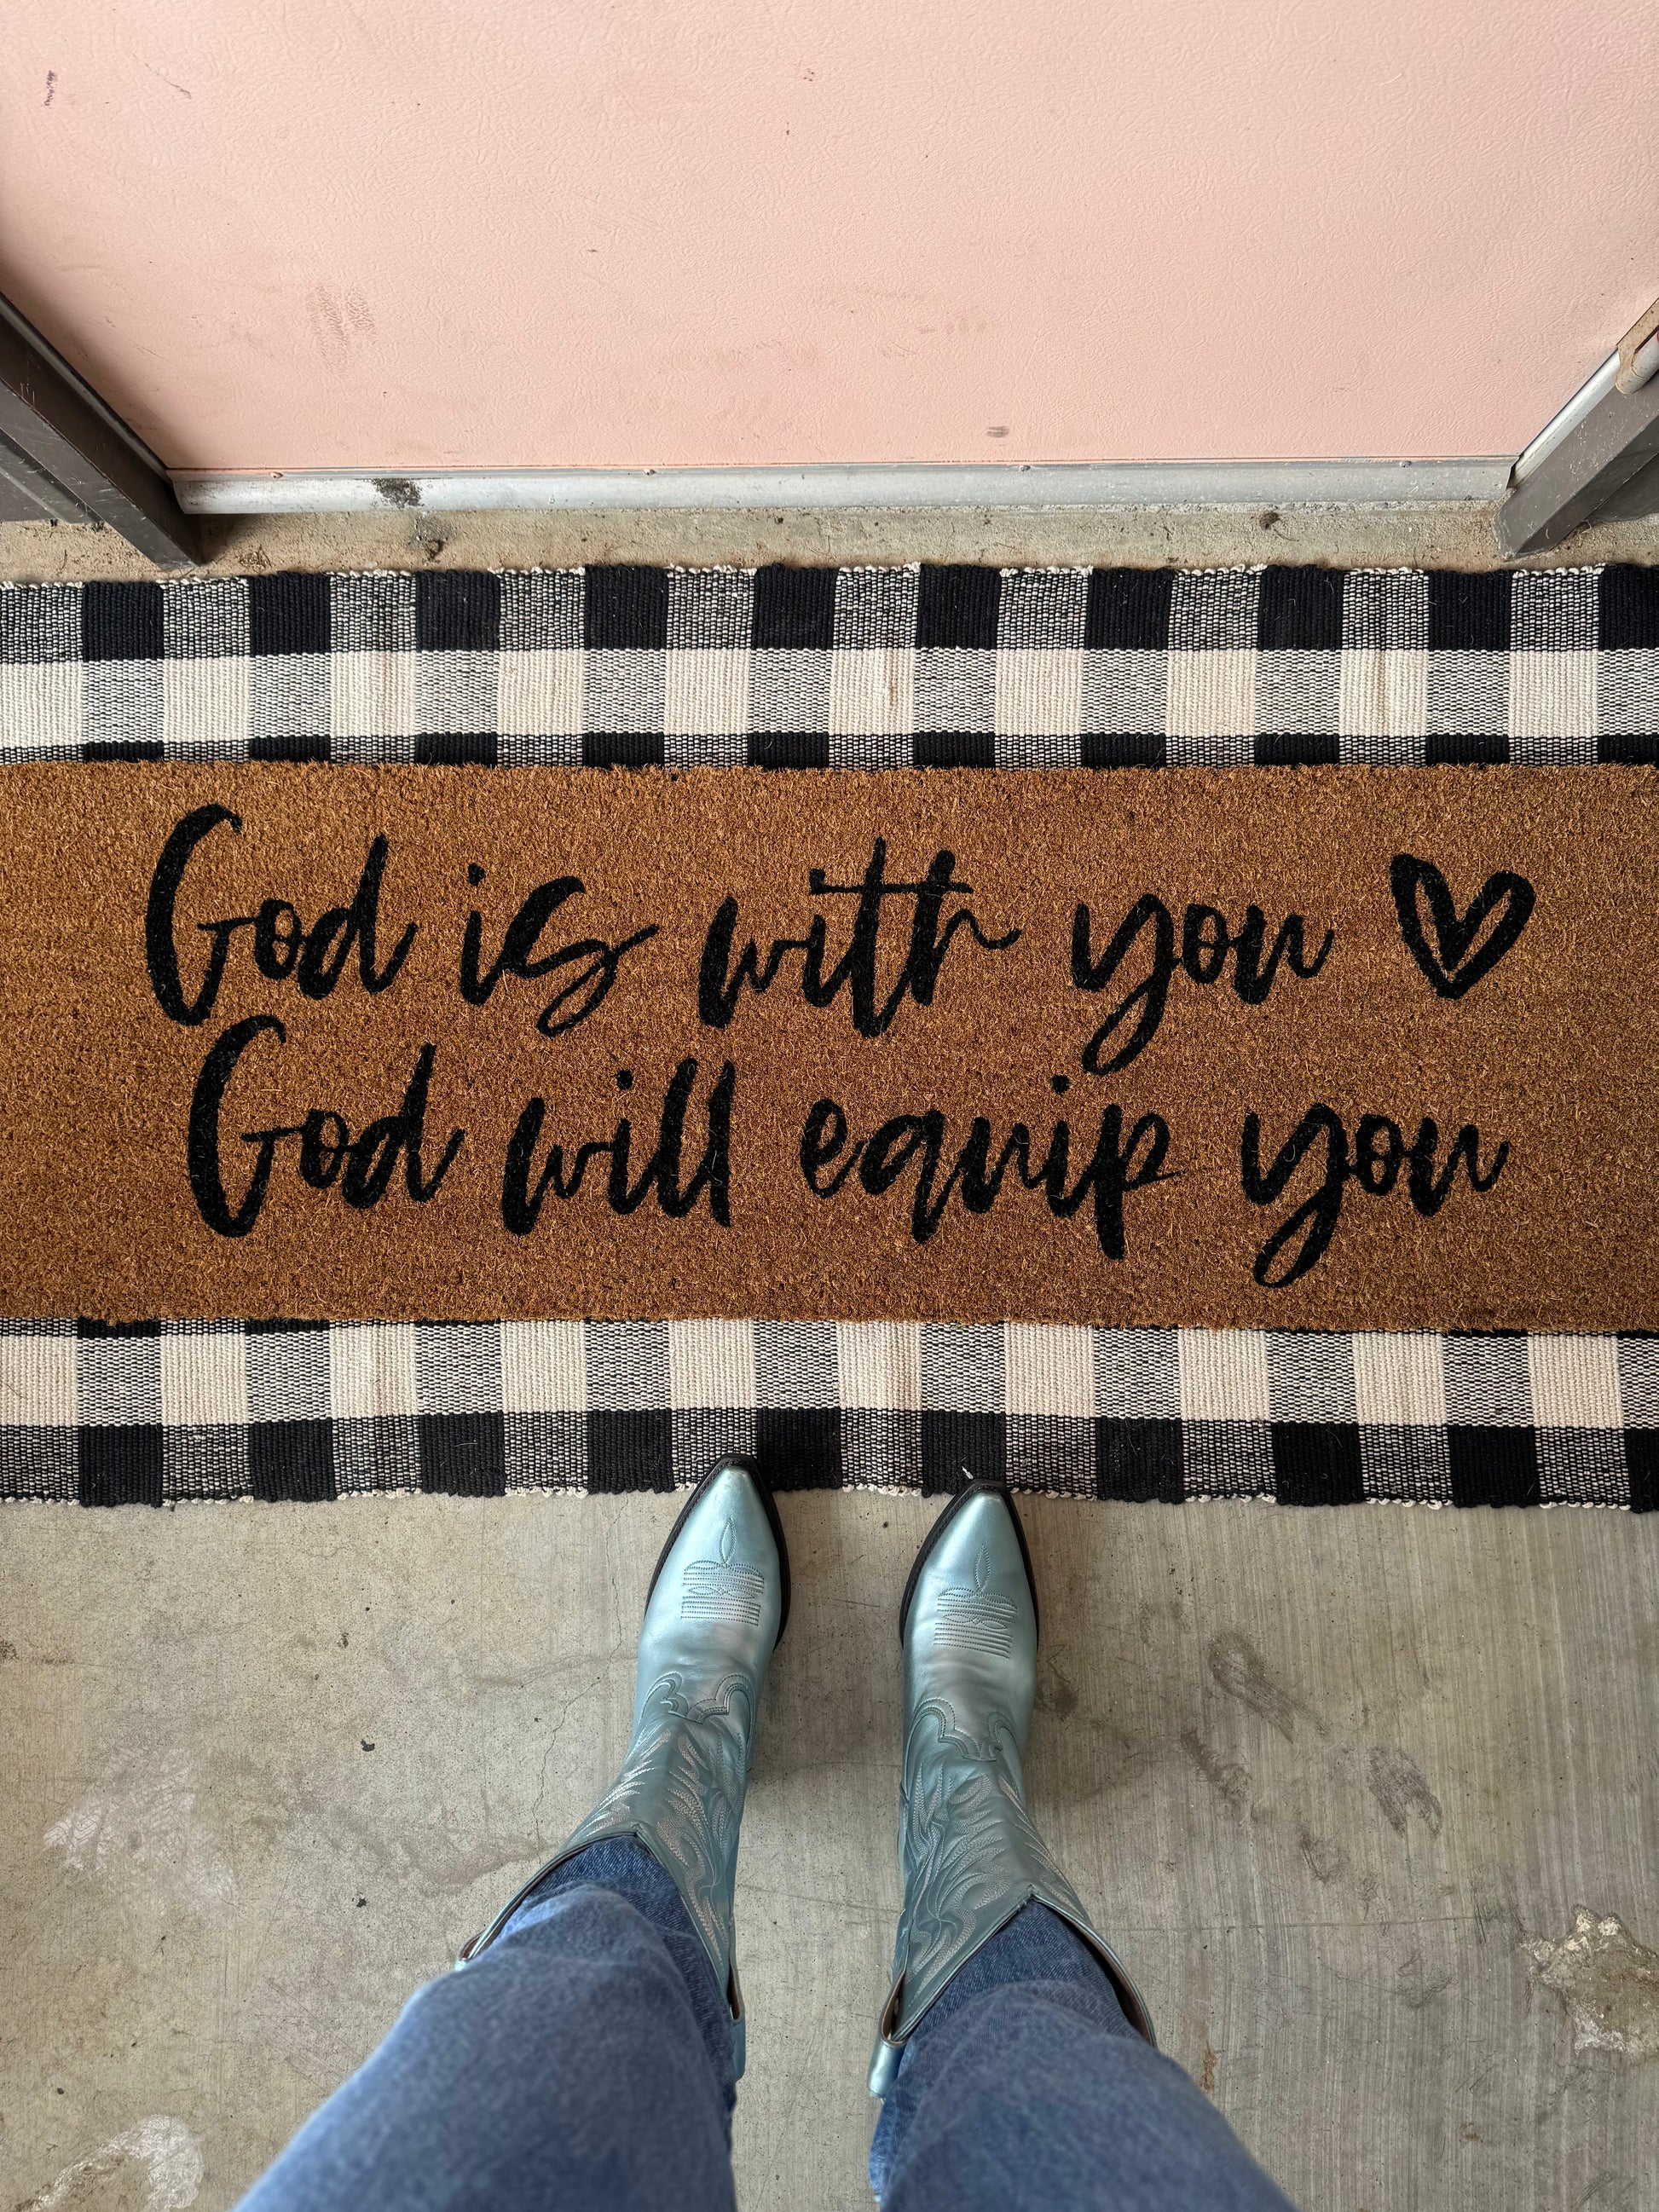 God is with you ♡
God will equip you